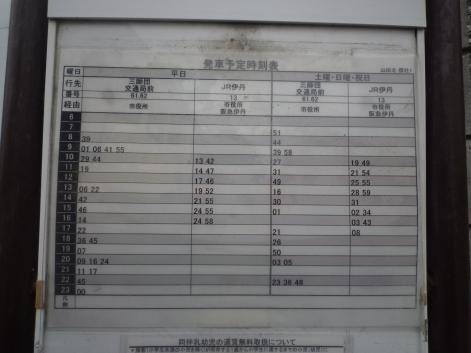 発車予定時刻表
曜日 平日 土曜・日曜・祝日
行先 三師団 交通局前 JR伊丹 三師団 交通局前 JR伊丹
番号 61.62 13 61.62 13
経由 市役所 市役所 阪急伊丹 市役所 市役所 阪急伊丹
6
7 51
8 39 44
9 01 06 41 55 39 58
10 29 44 13 42 27 19 49
11 19 14 47 31 21 54
12 17 46 49 25 55
13 06 22 19 52 16 28 59
14 42 21 55 30 31
15 46 24 55 01 02 34
16 14 24 58 03 43
17 22 21 08
18 36 45 26
19 07 50
20 09 16 24 03 05
21 11 17
22 45 23 36 48
23 00
同伴乳幼児の運賃無料取扱について